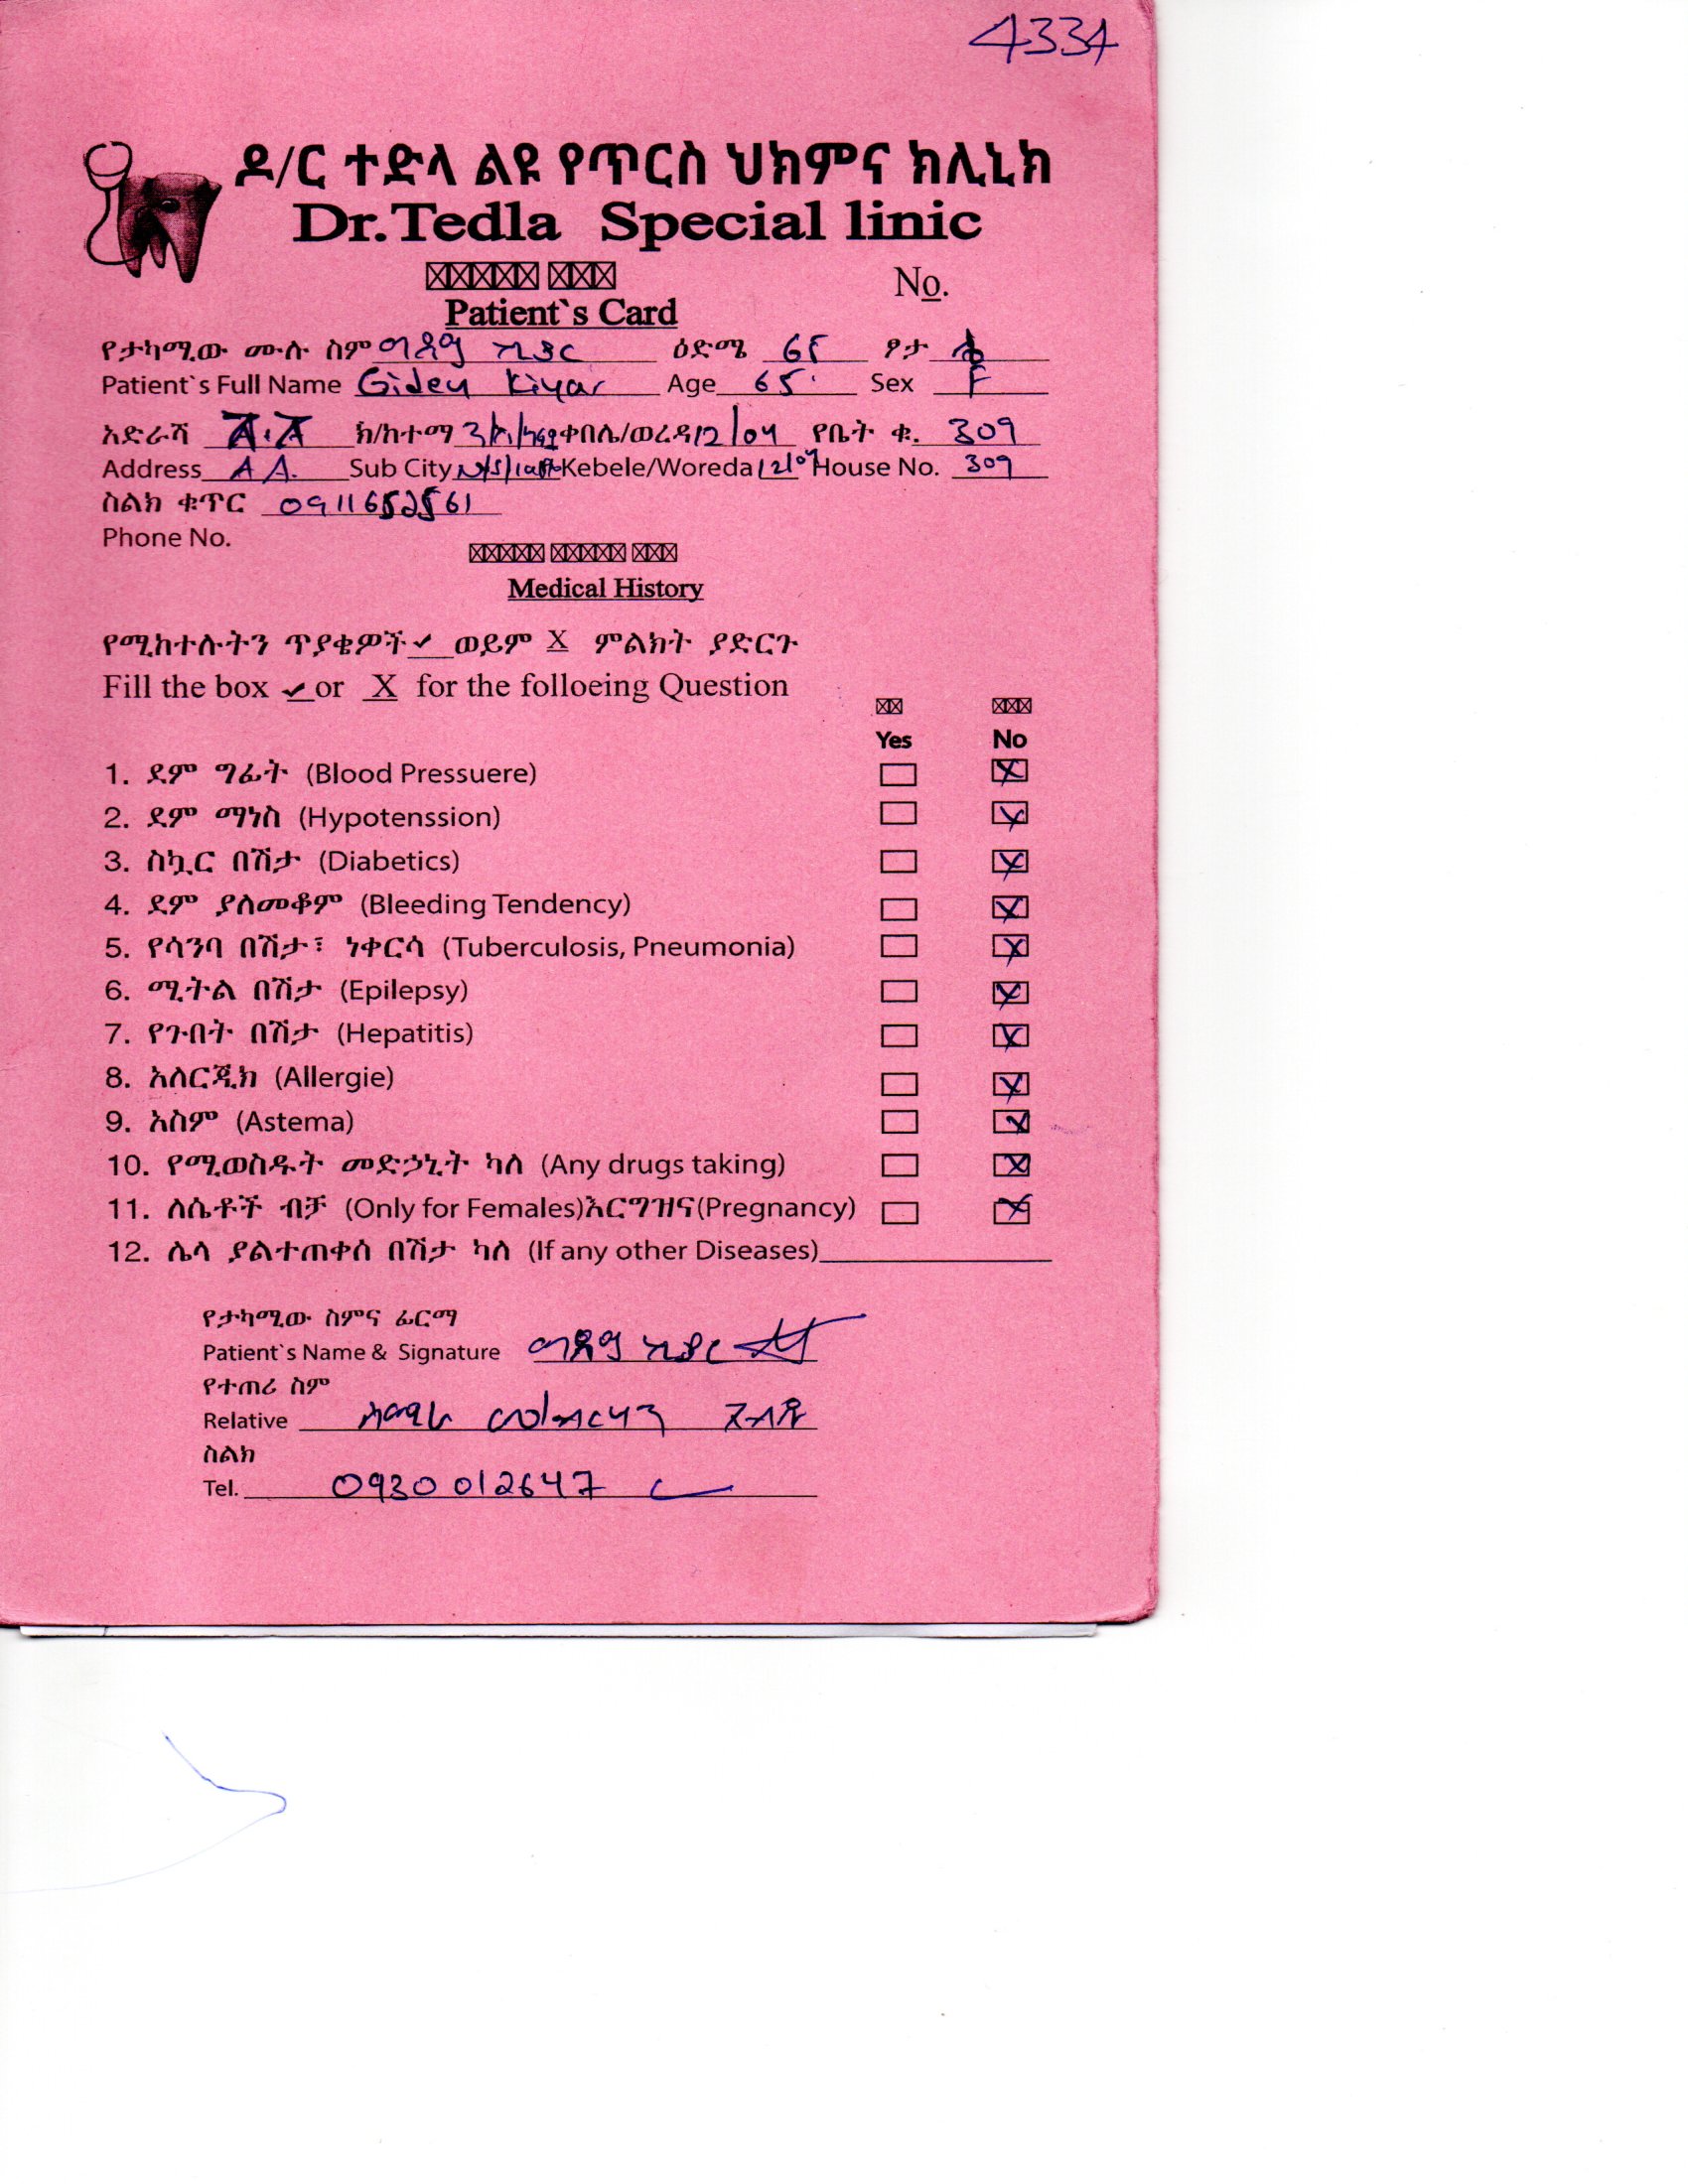 4334
ዶ/ር ተድላ ልዩ የጥርስ ህክምና ክሊኒክ
Dr.Tedla Special linic
No.
Patient`s Card
የታካሚው ሙሉ ስም ግደይ ኪያር ዕድሜ 65 ፆታ ሴ
Patient`s Full Name Gidey Kiyar Age 65 Sex F
አድራሻ አ.አ ክ/ከተማ ቀበሌ/ወረዳ 12/04 የቤት ቁ. 309
Address A A. Sub City Kebele/Woreda 12/04 House No. 309
ስልክ ቁጥር 0911652561
Phone No.
Medical History
የሚከተሉትን ጥያቄዎች ✓ ወይም X ምልክት ያድርጉ
Fill the box ✓ or X for the folloeing Question
Yes No
1. ደም ግፊት (Blood Pressuere) X
2. ደም ማነስ (Hypotenssion) X
3. ስኳር በሽታ (Diabetics) X
4. ደም ያለመቆም (Bleeding Tendency) X
5. የሳንባ በሽታ፣ ነቀርሳ (Tuberculosis, Pneumonia) X
6. ሚትል በሽታ (Epilepsy) X
7. የጉበት በሽታ (Hepatitis) X
8. አለርጂክ (Allergie) X
9. አስም (Astema) X
10. የሚወስዱት መድኃኒት ካለ (Any drugs taking) X
11. ለሴቶች ብቻ (Only for Females)እርግዝና(Pregnancy) X
12. ሌላ ያልተጠቀሰ በሽታ ካለ (If any other Diseases)
የታካሚው ስምና ፊርማ
Patient`s Name & Signature ግደይ ኪያር
የተጠሪ ስም
Relative
ስልክ
Tel. 0930 012647